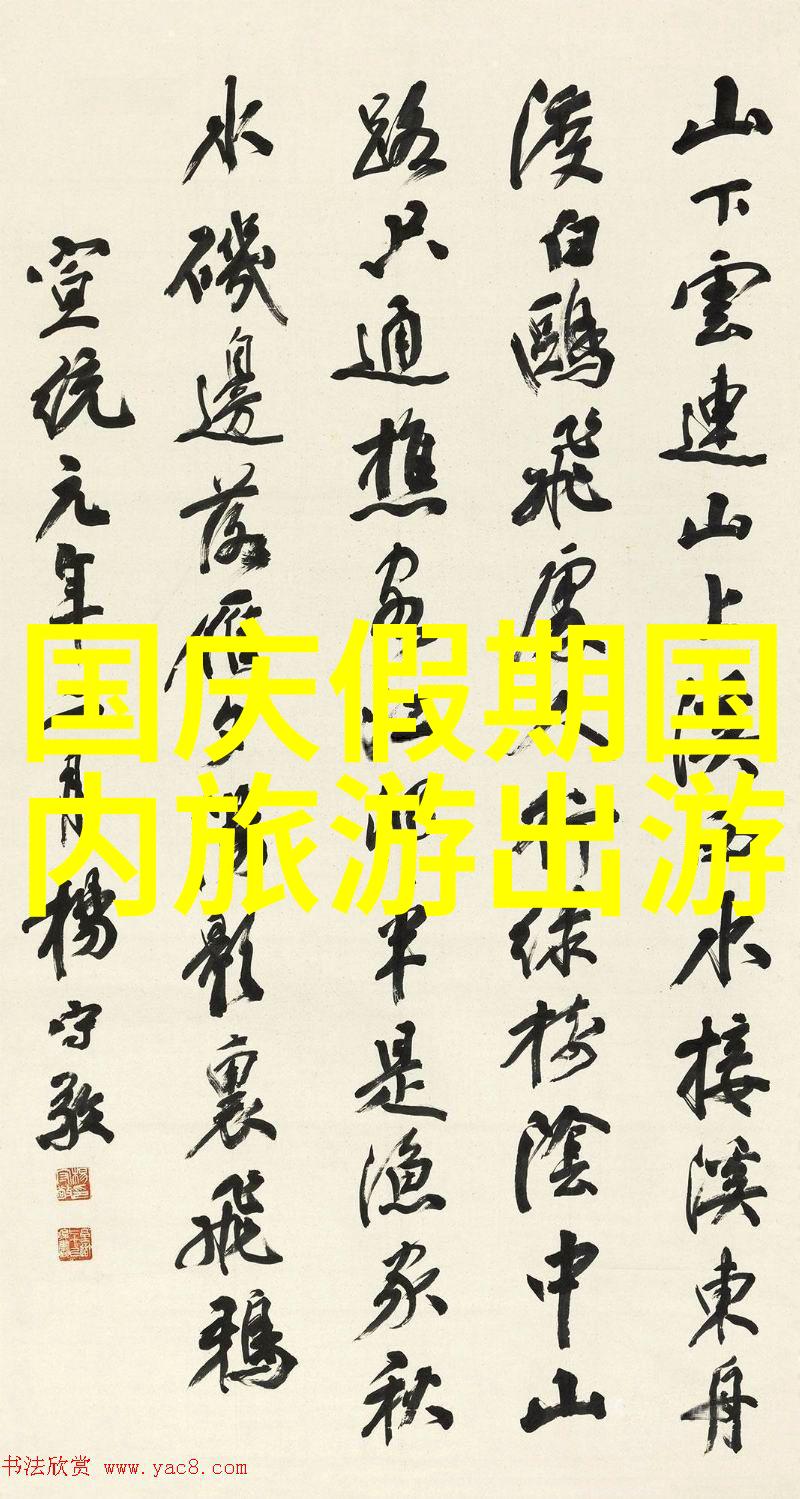 山下雲連山上溪西水接溪東舟
渡白鷗飛處人行綠樹陰中山
路只通樵客江村半是漁家秋
水磯邊落雁夕陽影裏飛鴉
宣統元年月楊守敬
国庆假期国
内旅游出游
书法欣赏 www.yac8.com